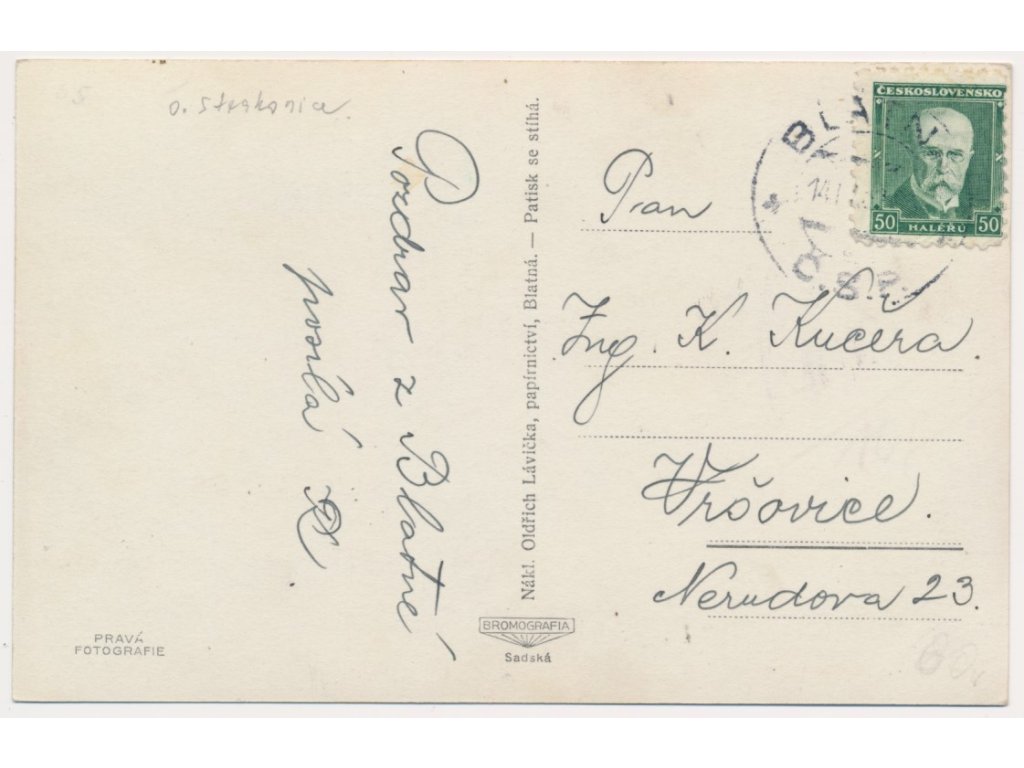 o. Strakonice
Pozdrav z Blatné
posílá
Nákl. Oldřich Lávička, papírnictví, Blatná. — Patisk se stíhá.
ČESKOSLOVENSKO
50 HALÉŘŮ 50
Č.S.R.
Pan
Ing. K. Kučera.
Vršovice.
Nerudova 23.
PRAVÁ
FOTOGRAFIE
BROMOGRAFIA
Sadská